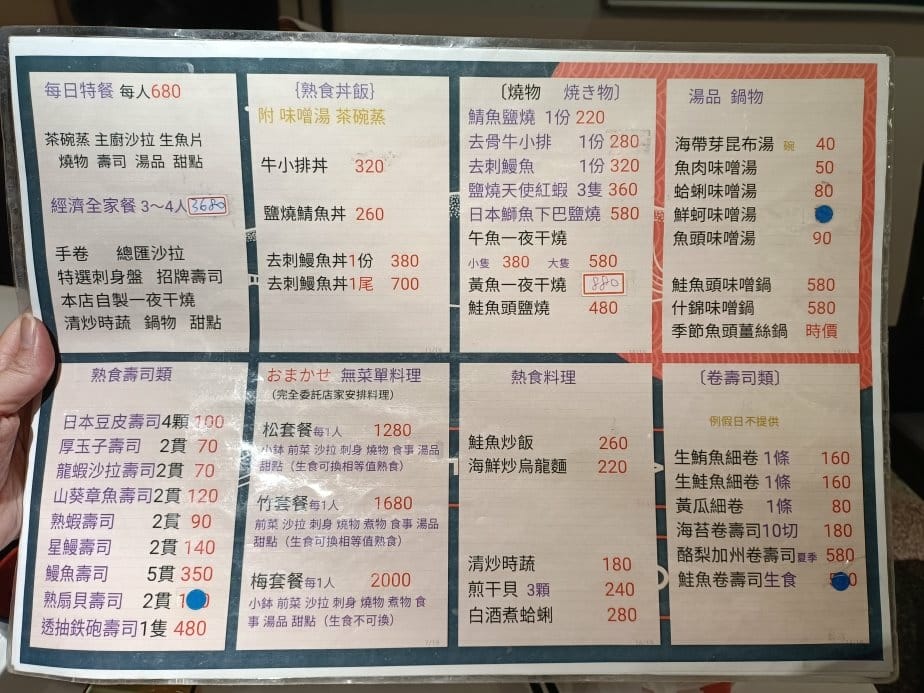 每日特餐 每人680
茶碗蒸 主廚沙拉 生魚片
燒物 壽司 湯品 甜點
經濟全家餐 3～4人 3680
手卷 總匯沙拉
特選刺身盤 招牌壽司
本店自製一夜干燒
清炒時蔬 鍋物 甜點
{熟食丼飯}
附 味噌湯 茶碗蒸
牛小排丼 320
鹽燒鯖魚丼 260
去刺鰻魚丼1份 380
去刺鰻魚丼1尾 700
〔燒物 焼き物〕
鯖魚鹽燒 1份 220
去骨牛小排 1份 280
去刺鰻魚 1份 320
鹽燒天使紅蝦 3隻 360
日本鰤魚下巴鹽燒 580
午魚一夜干燒
小隻 380 大隻 580
黃魚一夜干燒 880
鮭魚頭鹽燒 480
湯品 鍋物
海帶芽昆布湯 碗 40
魚肉味噌湯 50
蛤蜊味噌湯 80
鮮蚵味噌湯
魚頭味噌湯 90
鮭魚頭味噌鍋 580
什錦味噌鍋 580
季節魚頭薑絲鍋 時價
熟食壽司類
日本豆皮壽司4顆 100
厚玉子壽司 2貫 70
龍蝦沙拉壽司2貫 70
山葵章魚壽司2貫 120
熟蝦壽司 2貫 90
星鰻壽司 2貫 140
鰻魚壽司 5貫 350
熟扇貝壽司 2貫
透抽鉄砲壽司1隻 480
おまかせ 無菜單料理
（完全委託店家安排料理）
松套餐每1人 1280
小缽 前菜 沙拉 刺身 燒物 食事 湯品
甜點（生食可換相等值熟食）
竹套餐每1人 1680
前菜 沙拉 刺身 燒物 煮物 食事 湯品
甜點（生食可換相等值熟食）
梅套餐每1人 2000
小缽 前菜 刺身 燒物 煮物 食
事 湯品 甜點（生食不可換）
熟食料理
鮭魚炒飯 260
海鮮炒烏龍麵 220
清炒時蔬 180
煎干貝 3顆 240
白酒煮蛤蜊 280
〔卷壽司類〕
例假日不提供
生鮪魚細卷 1條 160
生鮭魚細卷 1條 160
黃瓜細卷 1條 80
海苔卷壽司10切 180
酪梨加州卷壽司夏季 580
鮭魚卷壽司生食